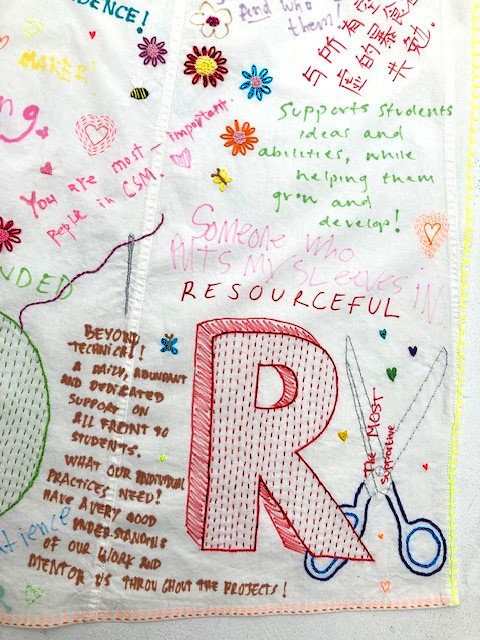 DENCE!
And who
them!
与所有
的
共勉.
MAKER!
ng.
You are most - important
people in CSM.
Supports students
ideas and
abilities, while
helping them
grow and
develop!
Someone who
PUTS MY SLEEVES IN
RESOURCEFUL
NDED
BEYOND
TECHNICAL!
A DAILY, ABUNDANT
AND DEDICATED
SUPPORT ON
ALL FRONT SO
STUDENTS.
WHAT OUR INDIVIDUAL
PRACTICES NEED!
HAVE A VERY GOOD
UNDERSTANDING
OF OUR WORK AND
MENTOR US THROUGHOUT THE PROJECTS!
R
The MOST
supportive
tience